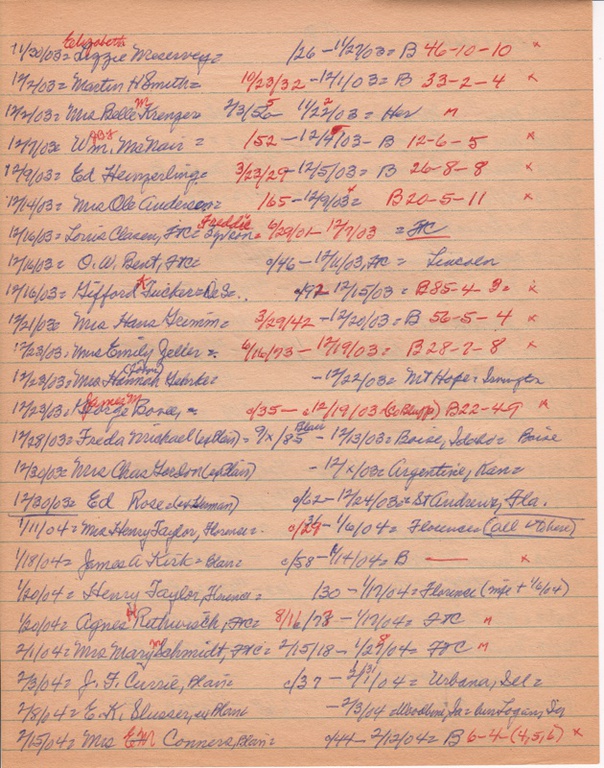 11/30/03 = Elizabeth Lizzie Meservey = /26 - 11/27/03 = B 46-10-10 x
12/2/03 = Martin H Smith = 10/23/32 - 12/1/03 = B 33-2-4 x
12/2/03 = Mrs Belle M Krenger 2/3/56 11/22/03 = Her m
12/7/03 = Wm. McNair = /52 - 12/4/03 - B 12-6-5 x
12/9/03 = Ed Heimerling = 3/23/29 - 12/5/03 = B 26-8-8 x
12/14/03 = Mrs Ole Anderson = /65 - 12/9/03 = B 20-5-11 x
12/16/03 = Louis Clasen, FTC = Freddie = 6/29/01 - 12/7/03 = FTC
12/16/03 = O.W. Bent, FTC = c/46 - 12/11/03, FTC = Lincoln
12/16/03 = Gifford K Tucker = D.S. c/92 - 12/15/03 = B 85-4 x
12/21/03 = Mrs Hans Grimm = 3/29/42 - 12/20/03 = B 56-5-4 x
12/23/03 = Mrs Emily Zeller = 6/16/73 - 12/19/03 = B 28-7-8 x
12/23/03 = Mrs. Hannah (John) Gehrke = - 12/22/03 = Mt Hope = Irvington
12/23/03 = James M George Bovee, = c/35 - c12/19/03 (Co Bluffs) B 22-49 x
12/28/03 = Freda Michael (ex Blair) = 9/x/85 Blair - 12/13/03 = Boise, Idaho = Boise
12/30/03 = Mrs Chas Gordon (ex Blair) - 12/x/03 = Argentine, Kan =
12/30/03 = Ed Rose (ex Herman) c/62 - 12/24/03 = St Andrews, Fla.
1/11/04 = Mrs Henry Taylor, Florence = c/29 - 1/6/04 = Florence
1/18/04 = James A Kirk = Blair = c/58 - 1/14/04 = B — x
1/20/04 = Henry Taylor, Florence = 130 - 1/17/04 = Florence (wife + 1/6/04)
1/20/04 = Agnes Ruthwisch, FTC = 8/16/78 - 1/17/04 = FTC m
2/1/04 = Mrs Mary M Schmidt, FTC = 2/15/18 - 1/28/04 = FTC m
2/3/04 = J. F. Currie, Blair = c/37 - 2/1/04 = Urbana, Ill =
2/8/04 = E.K. Slusser, ex Blair - 2/3/04 Woodbine, Ia = bur Logan, Ia
2/15/04 = Mrs E M Conners, Blair = c/44 - 2/12/04 = B 6-4-(4,5,6) x